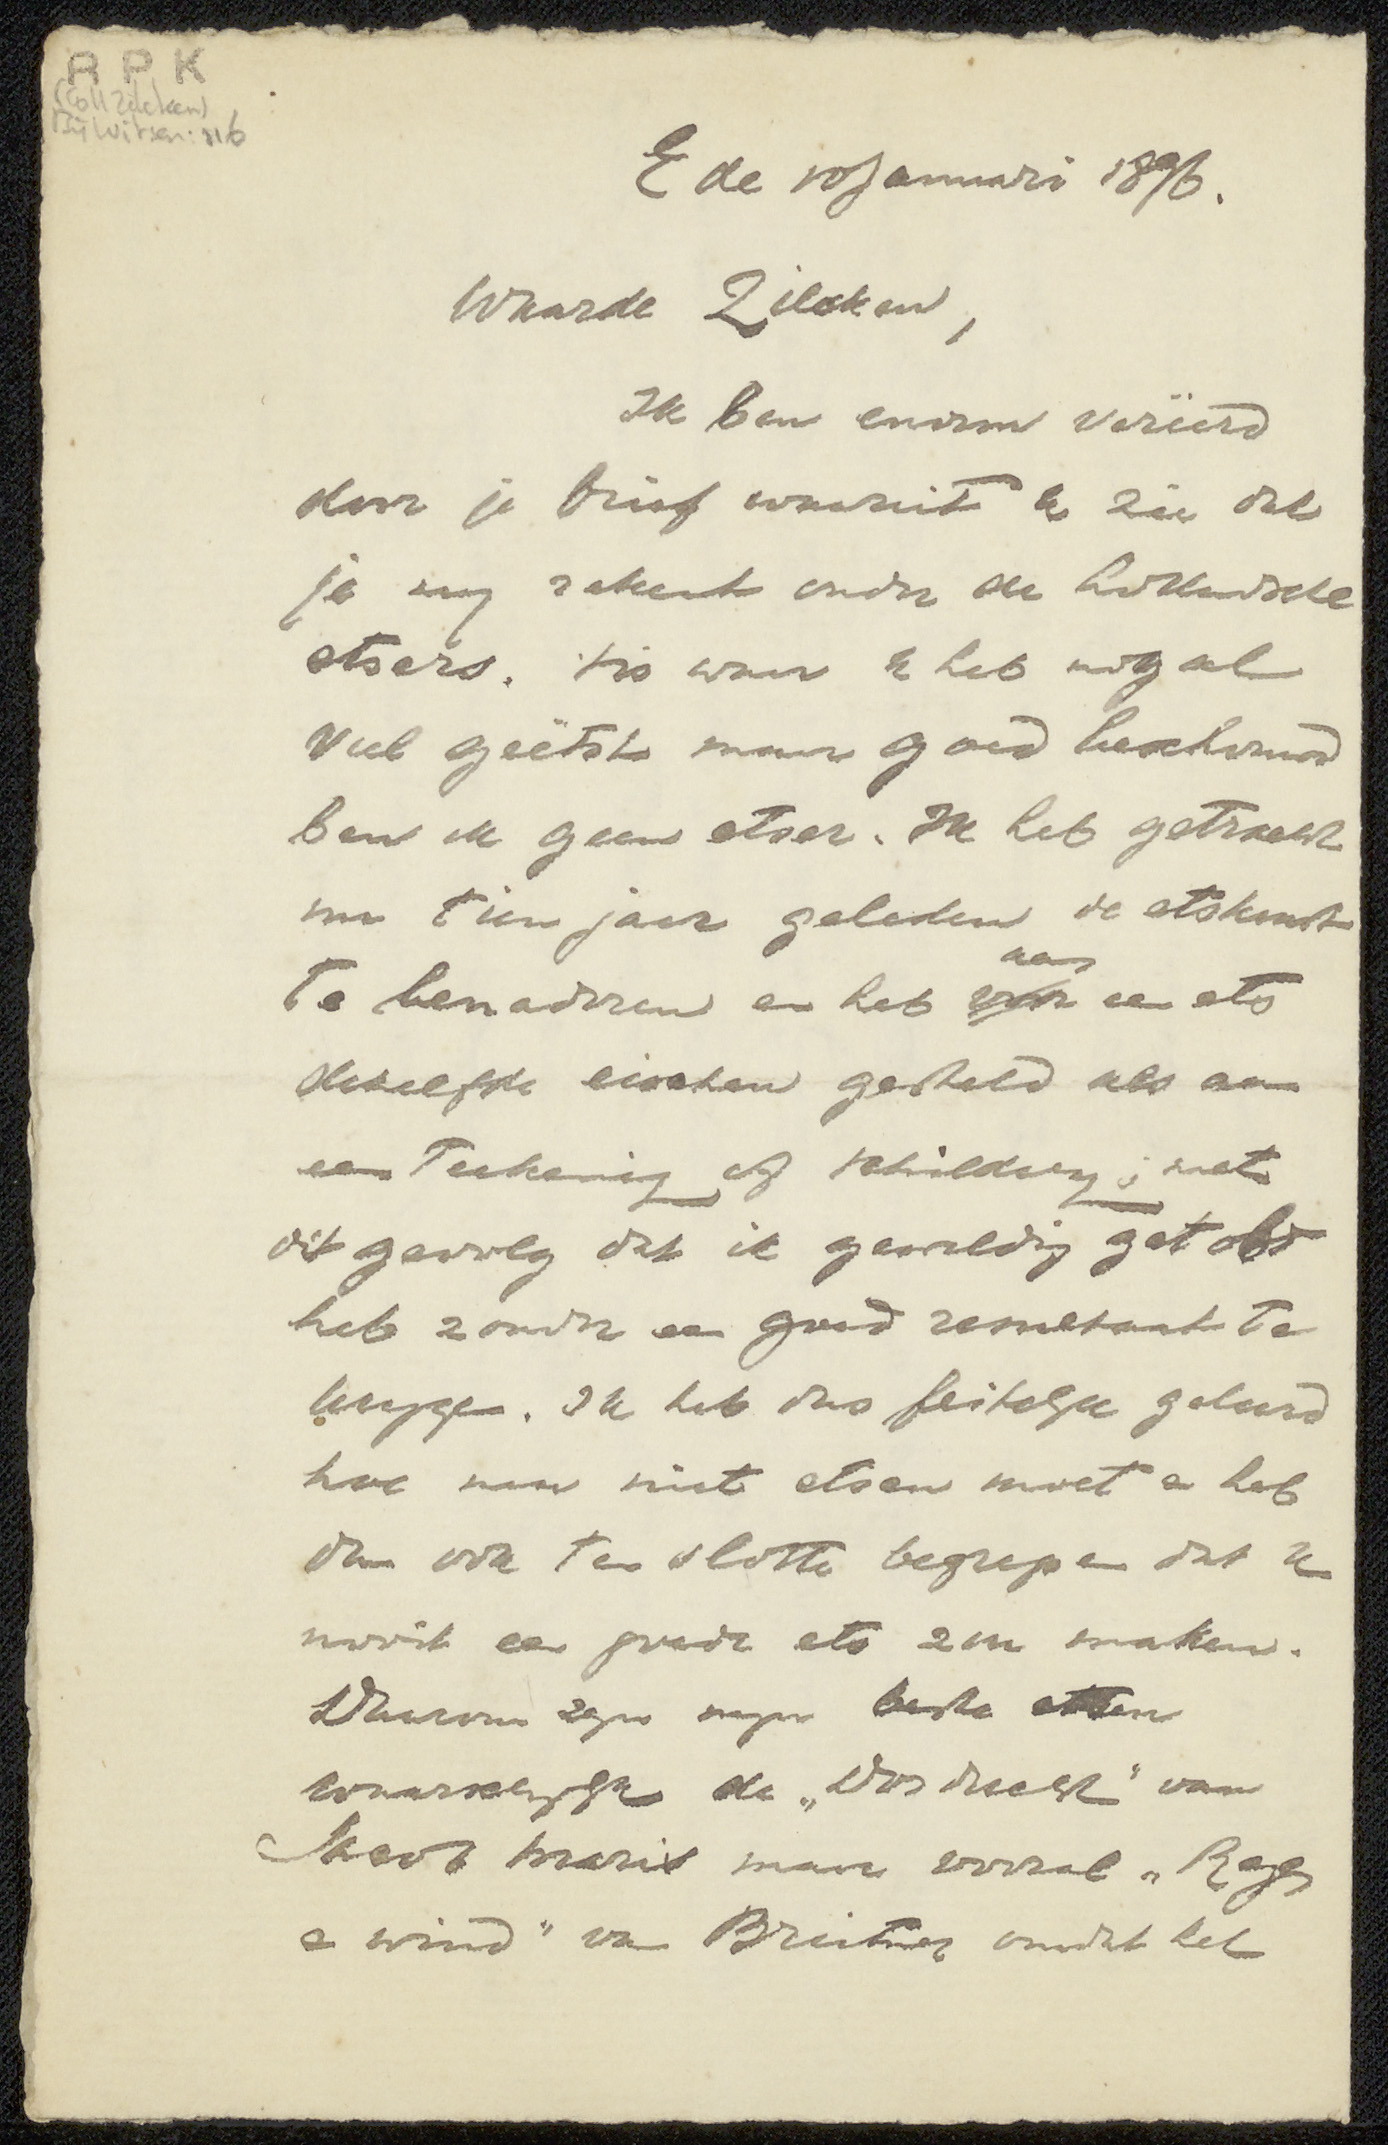 R P K
(Coll Zilcken)
Bij Witsen: 116
Ede 10 Januari 1896.
Waarde Zilcken,
Ik ben enorm vereerd
door je brief waaruit ik zie dat
je my rekent onder de hollandsche
etsers. 't is waar ik heb nogal
veel geëtst maar goed beschouwd
ben ik geen etser. Ik heb getracht
nu tien jaar geleden de etskunst
te benaderen en heb aan een ets
dezelfde eischen gesteld als aan
een teekening of schildery; met
dit gevolg dat ik geweldig getobd
heb zonder een goed resultaat te
krygen. Ik heb dus feitelyk geleerd
hoe men niet etsen moet en heb
dan ook ten slotte begrepen dat ik
nooit een goede ets zou maken.
Daarom zyn myn beste etsen
waarschynlyk de „Dordrecht" van
Jacob Maris maar vooral „Regen
en wind" van Breitner omdat het